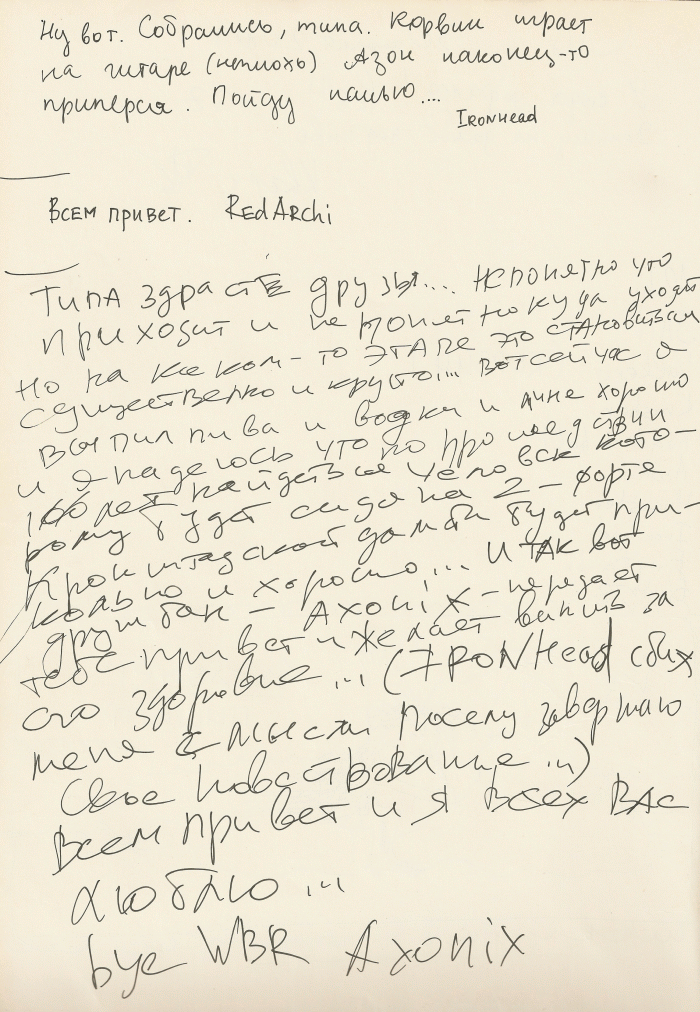 Ну вот. Собрались, типа. Корвин играет
на гитаре (неплохо) Азон наконец-то
приперся. Пойду напью....
IRONHead
Всем привет. RedArchi
Типа здрасте друзья... Непонятно что
приходит и непонятно куда уходит
Но на каком-то этапе это становиться
существенно и круто... Вот сейчас я
выпил пива и водки и мне хорошо
и я надеюсь что по прошедствии
100 лет найдеться человек кото-
рому будет сидя на 2-форте
Кронштадской дамбы будет при-
кольно и хорошо... И так вот
дружбан - Axonix - передает
тебе привет и желает выпив за
его здоровие ... (IRONHead сбил
меня с мысли посему завершаю
свое повествование ...)
Всем привет и я всех вас
люблю ...
bye WBR Axonix